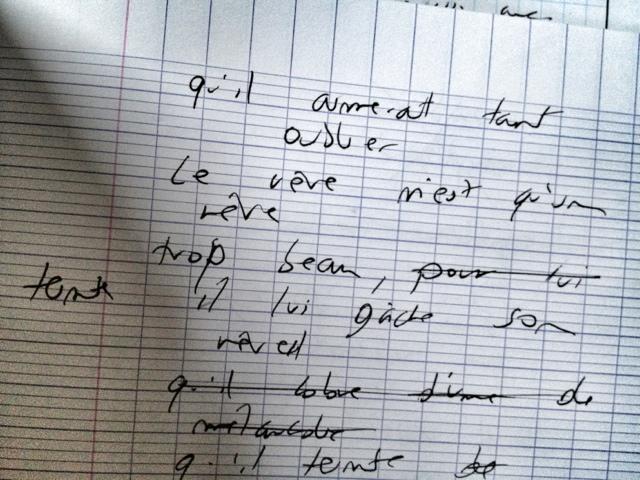 qu'il aimerait tant
oublier
Le rêve n'est qu'un
rêve
trop beau, pour lui
teinte
il lui gâche son
réveil
qu'il colore d'une de
mélancolie
qu'il teinte de